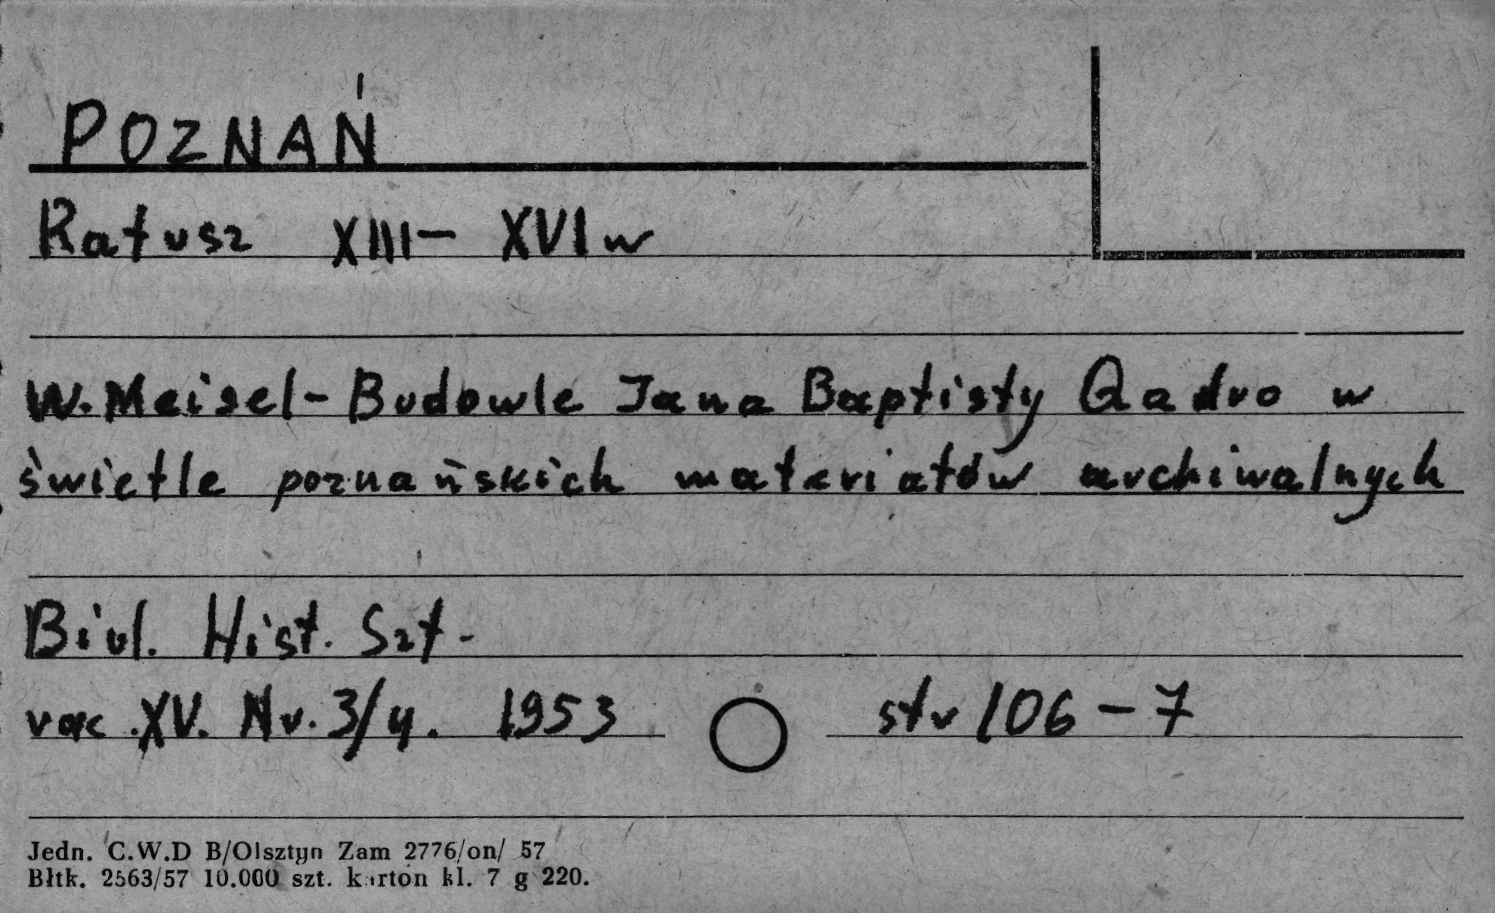 POZNAŃ
Ratusz XIII - XVI w
W. Meisel - Budowle Jana Baptisty Qadro w
świetle poznańskich materiałów archiwalnych
Biul. Hist. Szt.
roc. XV. Nr. 3/4. 1953 str 106 - 7
Jedn. C.W.D B/Olsztyn Zam 2776/on/ 57
Błtk. 2563/57 10.000 szt. karton kl. 7 g 220.